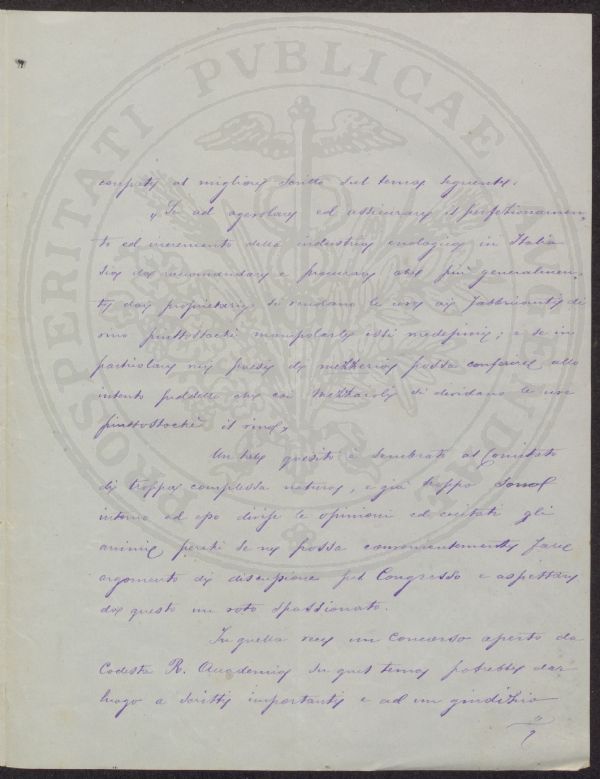 PROSPERITATI PVBLICAE AVGENDAE
conferto al migliore scritto sul tema seguente.
"Se ad agevolare ed assicurare il perfezionamen-
to ed incremento della industria enologica in Italia
sia da raccomandare e procurare che più generalmen-
te dai proprietarii si vendano le uve ai fabbricanti di
vino piuttostochè manipolarle essi medesimi; e se in
particolare nei paesi di mezzeria possa conferire allo
intento suddetto che coi Mezzaioli si dividano le uve
piuttostochè il vino"
Un tale quesito è sembrato al Comitato
di troppa complessa natura, e già troppo sono
intorno ad esso divise le opinioni ed eccitati gli
animi, perchè se ne possa convenientemente fare
argomento di discussione pel Congresso e aspettare
da questo un voto spassionato.
In quella vece un Concorso aperto da
Codesta R. Accademia su quel tema potrebbe dar
luogo a scritti importanti e ad un giudizio